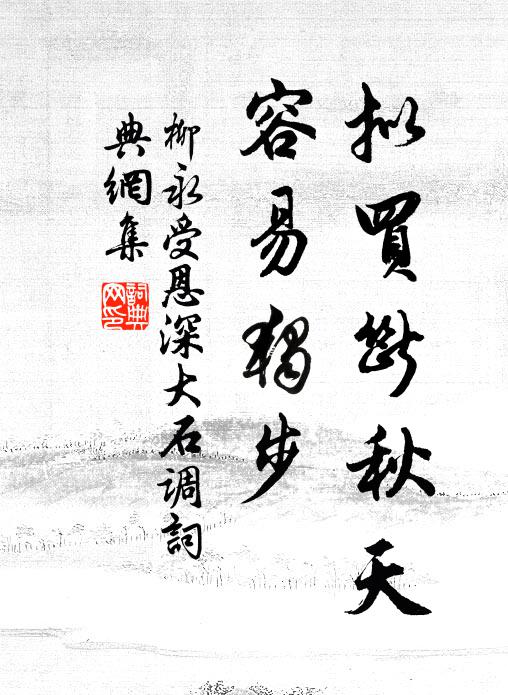 拟買斷秋天
容易獨步
柳永受恩深大石調詞
典網集
詞典
网印